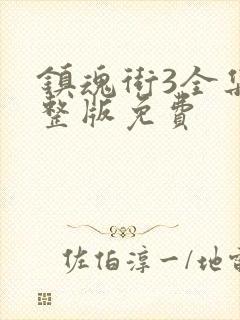 鎮魂街3全集
整版免費
佐伯淳一/地